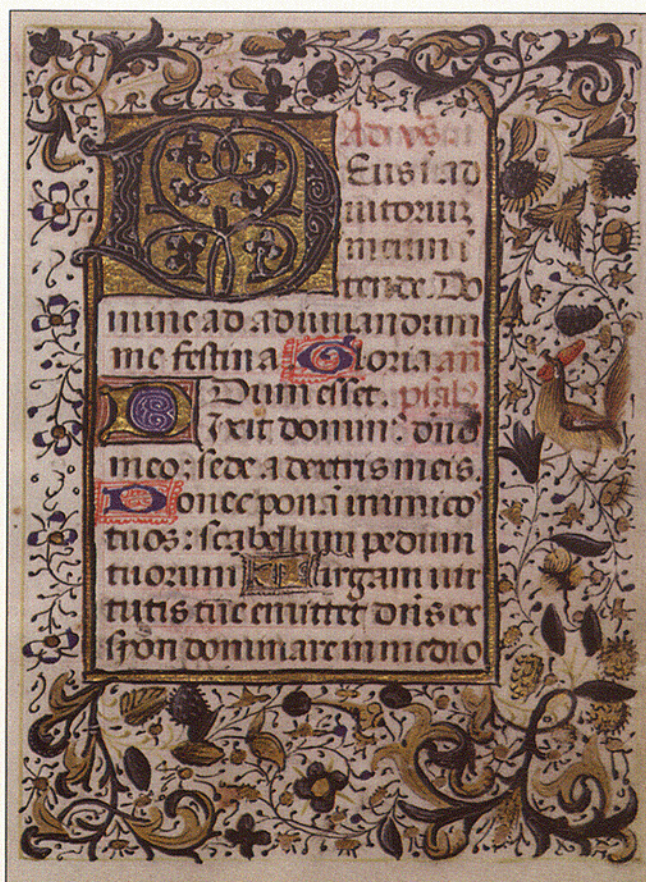 Ad
Deus i ad
iutoriuz
meum ī
tende. Do
mine ad adiuuandum
me festina. Gloria añ
Dum esset. psal
Dixit domin⁹: dño
meo: sede a dextris meis.
Donec ponā inimico
tuos: scabellum pedum
tuorum Uirgam uir
tutis tue emittet dñs ex
syon dominare in medio